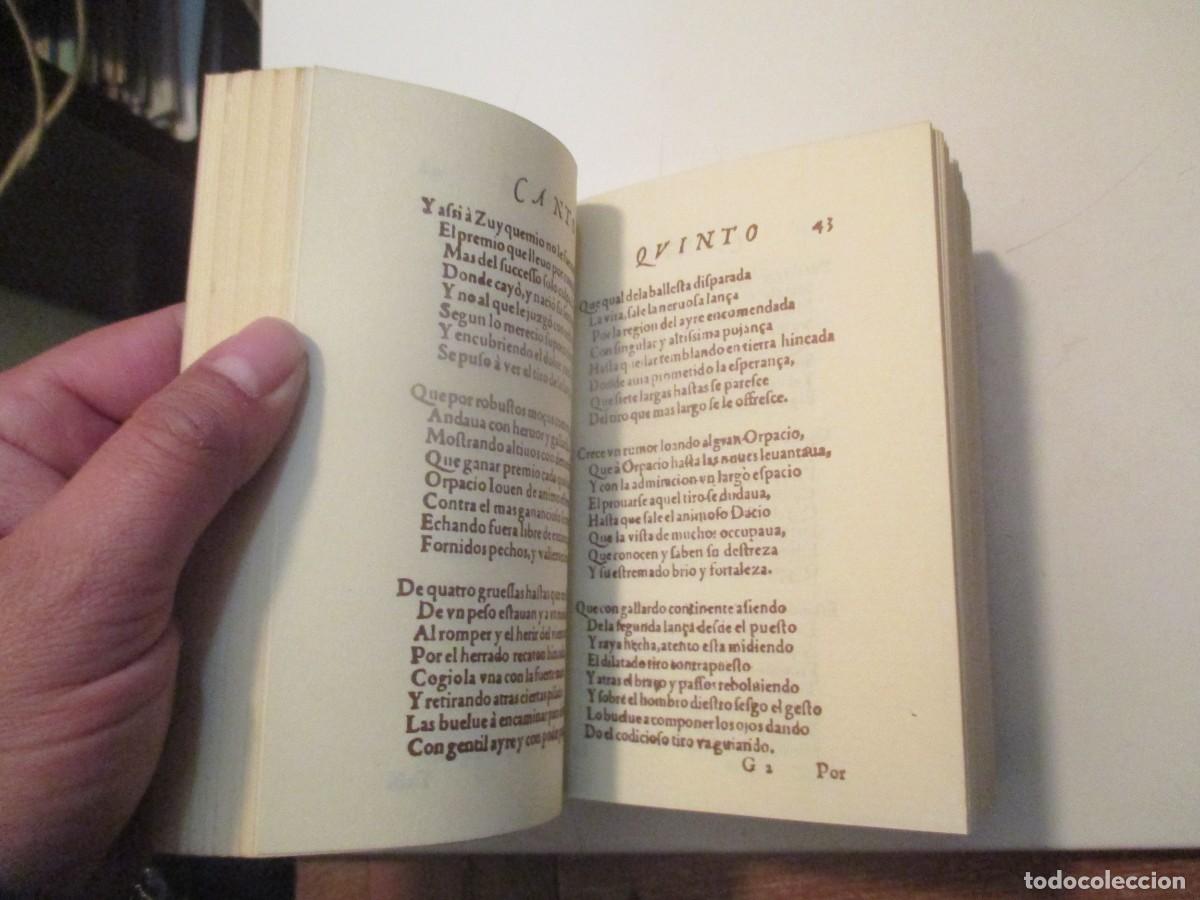 CANT
Y assi à Zuyquemio no le
El premio que lleuo por
Mas del successo solo
Donde cayò, y nació su
Y no al que le juzgó con
Segun lo merecio su
Y encubriendo el dolor
Se puso à ver el tiro de la
Que por robustos moços
Andaua con heruor y
Mostrando altiuos con
Que ganar premio cada
Orpacio Iouen de animo
Contra el mas ganancioso
Echando fuera libre de
Fornidos pechos, y
De quatro gruessas hastas que
De vn peso estauan y a vn
Al romper y el herir del
Por el herrado recaton
Cogiola vna con la fuerte
Y retirando atras ciertas
Las buelue à encaminar
Con gentil ayre y con
QVINTO 43
Que qual de la ballesta disparada
La vira, sale la neruosa lança
Por la region del ayre encomendada
Con singular y altissima pujança
Hasta quedar temblando en tierra hincada
Donde auia prometido la esperança,
Que siete largas hastas se paresce
Del tiro que mas largo se le offresce.
Crece vn rumor loando al gran Orpacio,
Que à Orpacio hasta las noues leuantaua,
Y con la admiracion vn largo espacio
El prouarse aquel tiro se dudaua,
Hasta que sale el animoso Dacio
Que la vista de muchos occupaua,
Que conocen y saben su destreza
Y su estremado brio y fortaleza.
Que con gallardo continente asiendo
De la segunda lança desde el puesto
Y raya hecha, atento esta midiendo
El dilatado tiro contrapuesto
Y atras el braço y passos rebolviendo
Y sobre el hombro diestro sesgo el gesto
Lo buelue a componer los ojos dando
Do el codicioso tiro va guiando.
G 2 Por
todocoleccion